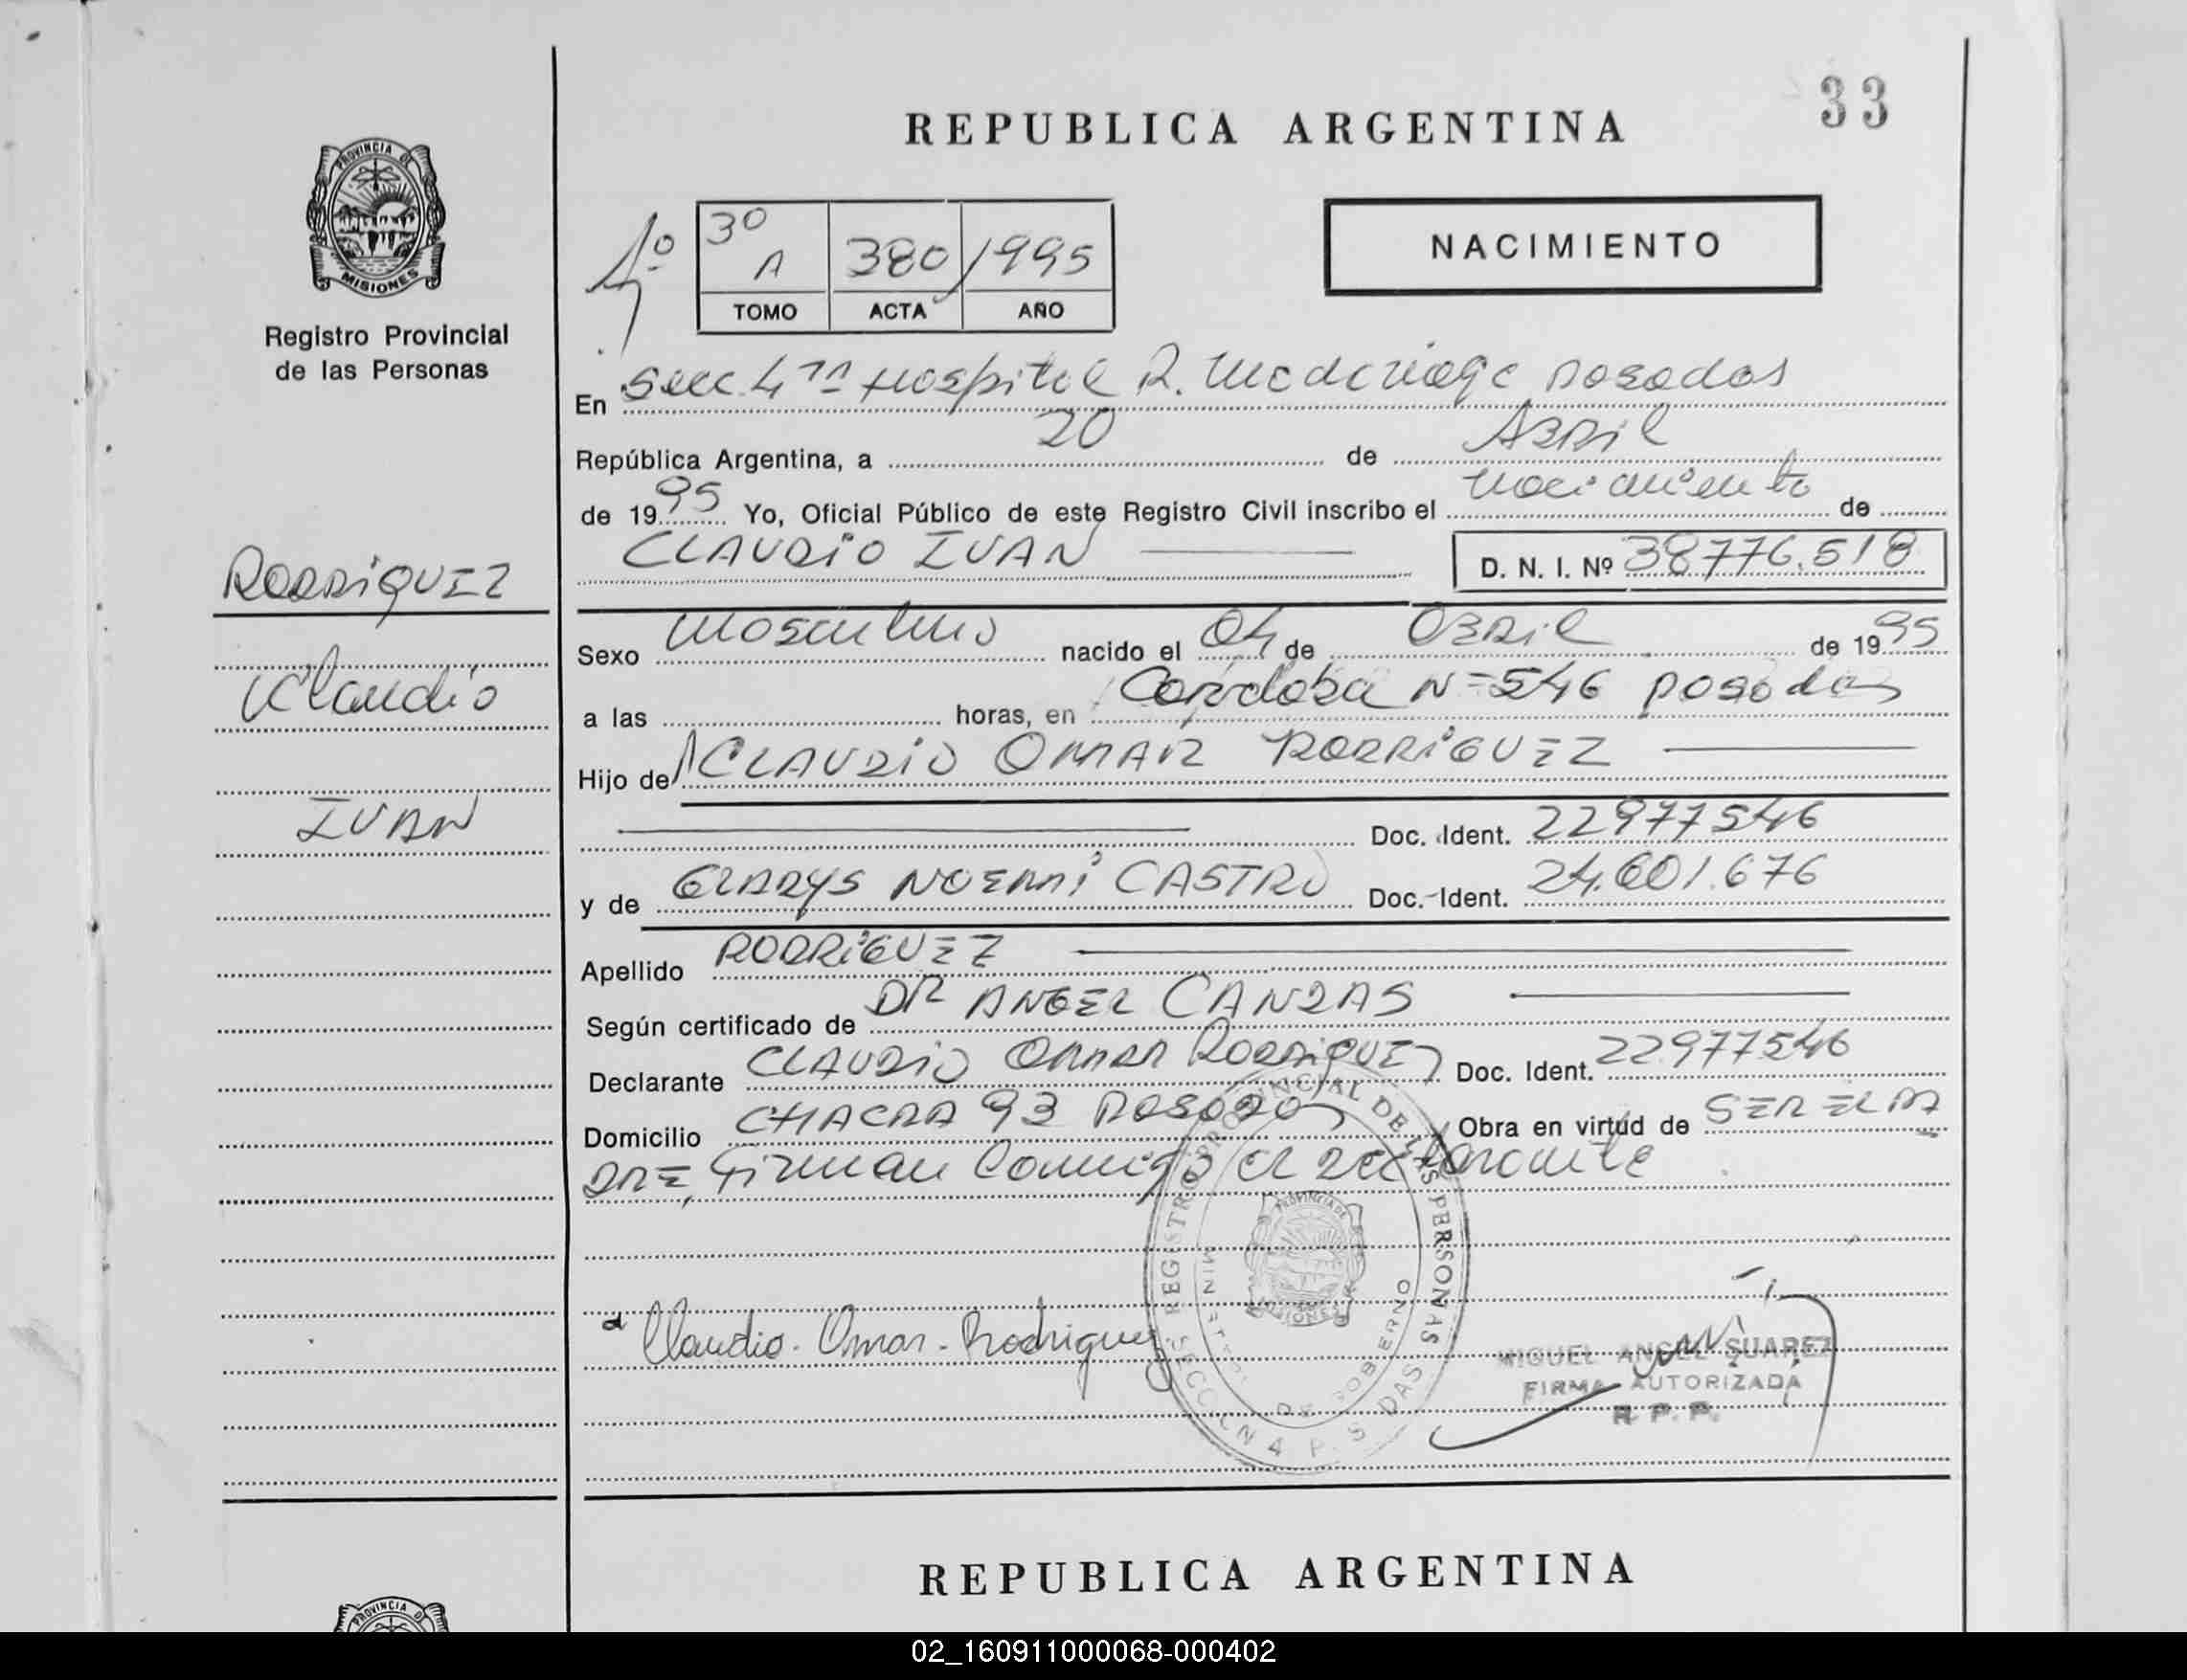 33
REPUBLICA ARGENTINA
PROVINCIA DE
MISIONES
Registro Provincial
de las Personas
4º
3º
A
380
1995
TOMO
ACTA
AÑO
NACIMIENTO
En Secc 4ta Hospital R. Madariaga Posadas
República Argentina, a 20 de ABRIL
de 1995 Yo, Oficial Público de este Registro Civil inscribo el nacimiento de
CLAUDIO IVAN
D. N. I. Nº 38776.518
RODRIGUEZ
Claudio
IVAN
Sexo masculino nacido el 04 de ABRIL de 1995
a las horas, en Cordoba N=546 posadas
Hijo de CLAUDIO OMAR RODRIGUEZ
Doc. Ident. 22977546
y de GLADYS NOEMÍ CASTRO Doc. Ident. 24.601.676
Apellido RODRIGUEZ
Según certificado de DR ANGEL CANDAS
Declarante CLAUDIO OMAR RODRIGUEZ Doc. Ident. 22977546
Domicilio CHACRA 93 POSADAS Obra en virtud de SER EL PA
DRE, Firman Conmigo el declarante
REGISTRO PROVINCIAL DE LAS PERSONAS
DE GOBIERNO
Claudio Omar Rodriguez
MIGUEL ANGEL SUAREZ
FIRMA AUTORIZADA
R. P. P.
REPUBLICA ARGENTINA
PROVINCIA
02_160911000068-000402